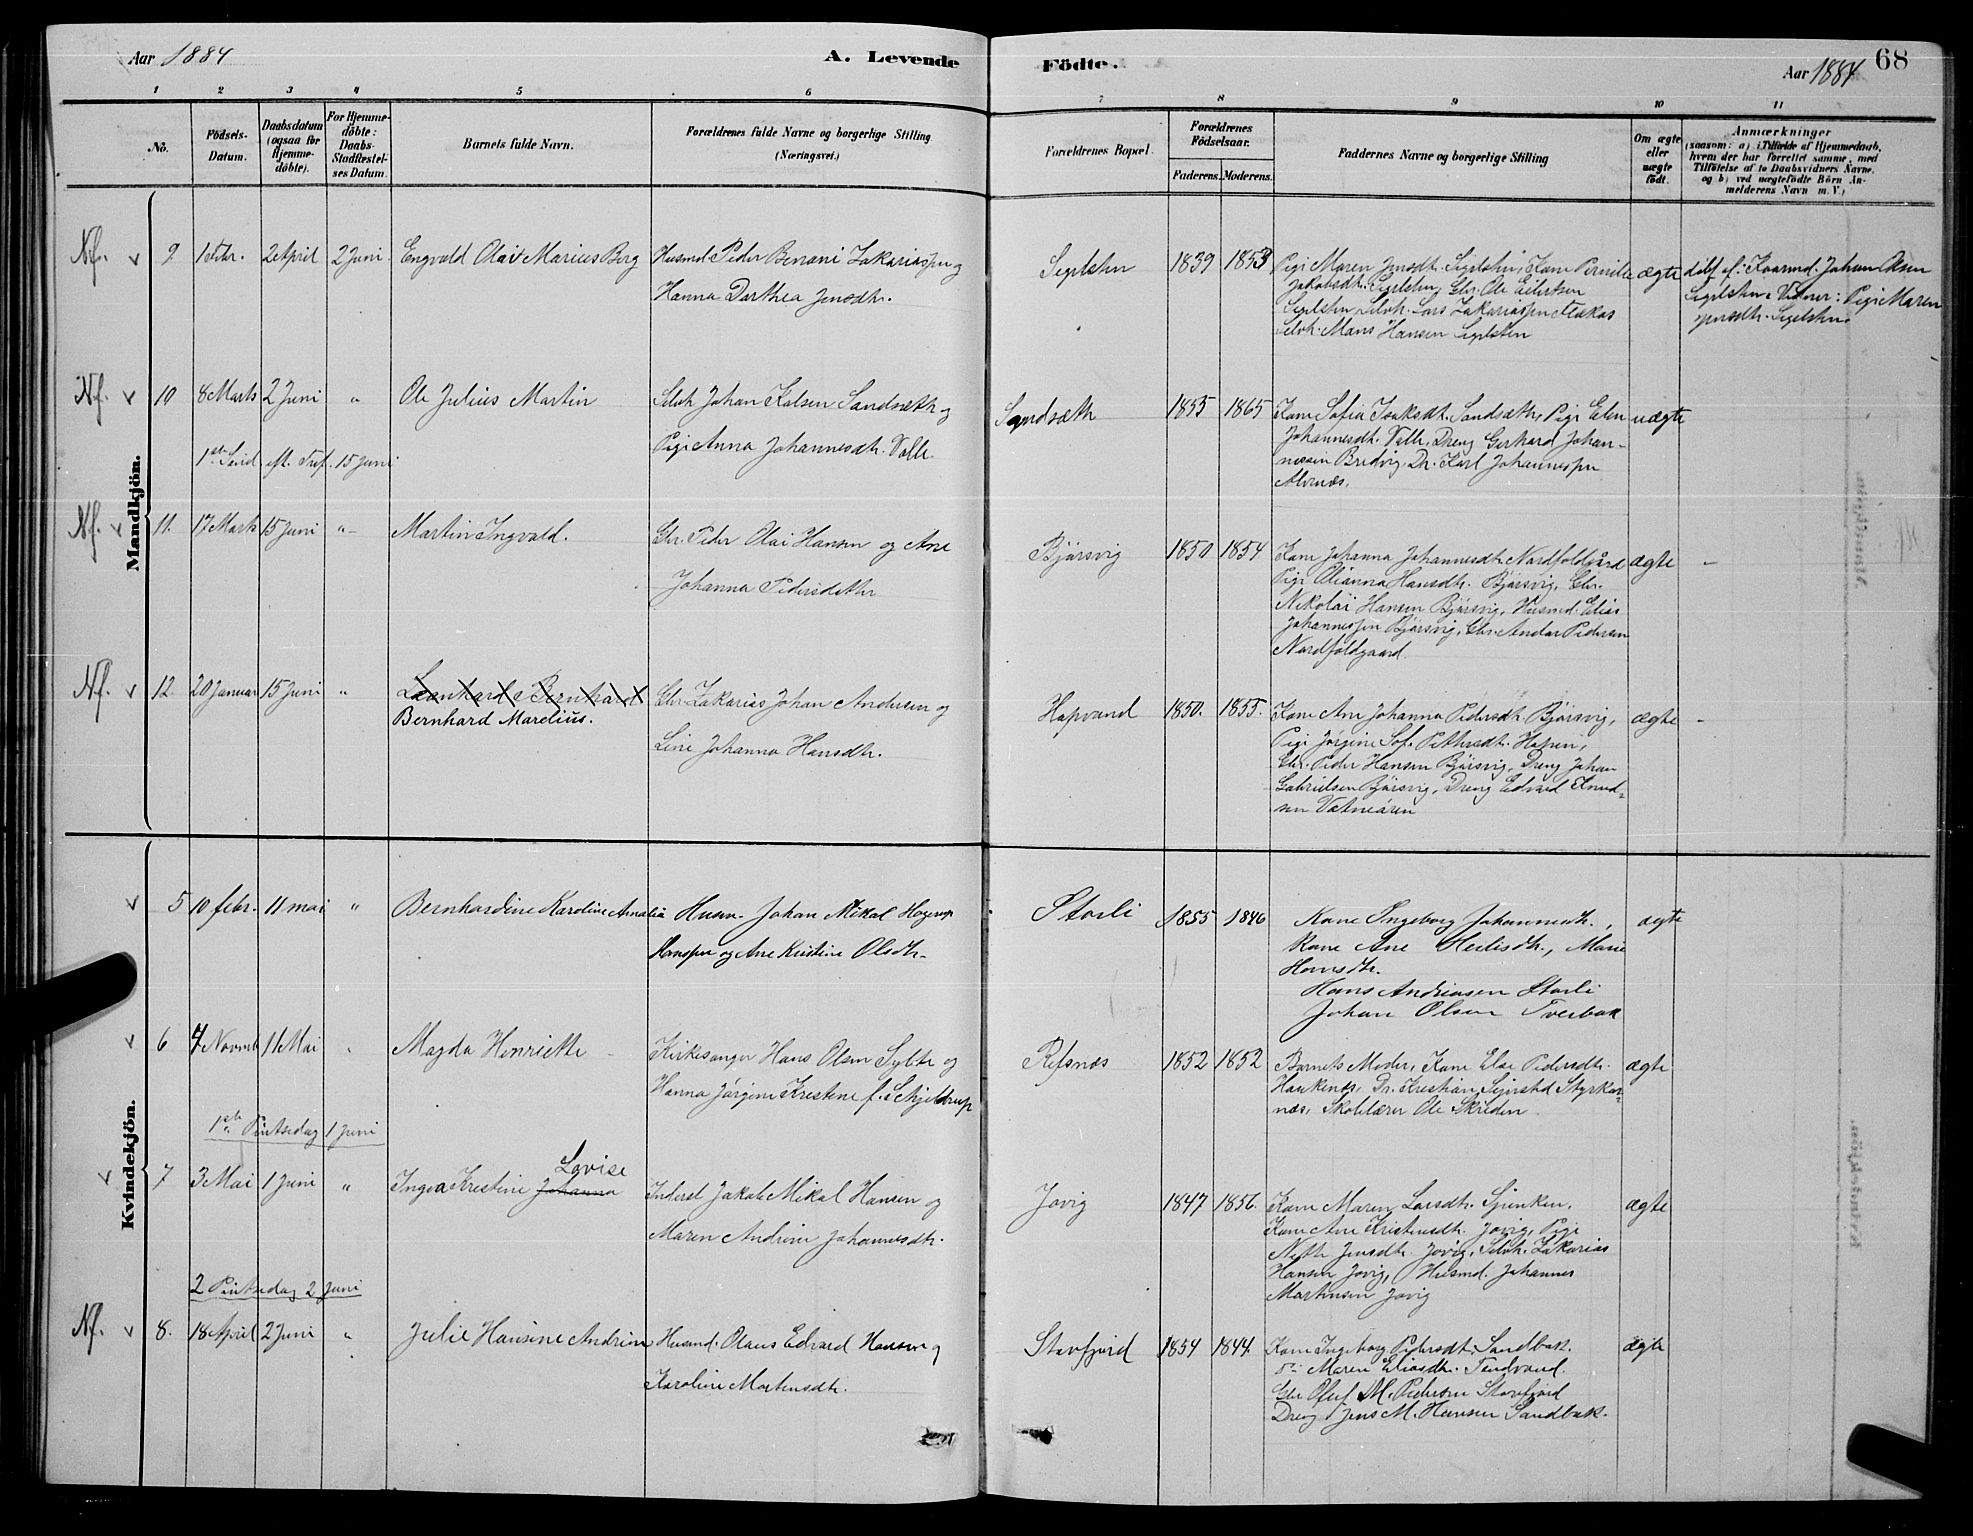 Aar 1884
A. Levende
Födte.
Aar 1884
68
1 2 3 4 5 6 7 8 9 10 11
No.
Födsels-
Datum.
Daabsdatum
(ogsaa for
Hjemme-
döbte).
For Hjemme-
döbte:
Daabs-
Stadfæstel-
ses Datum.
Barnets fulde Navn.
Forældrenes fulde Navne og borgerlige Stilling
(Næringsvei.)
Forældrenes Bopæl.
Forældrenes
Födselsaar.
Faderens. Moderens.
Faddernes Navne og borgerlige Stilling
Om ægte
eller
uægte
födt.
Anmærkninger
(saasom: a) i Tilfælde af Hjemmedaab,
hvem der har forrettet samme, med
Tilföielse af to Daabsvidners Navne.
og b) ved uægtefödte Börn An-
melderens Navn m. V.)
Mandkjön.
Nf. v 9 1 Febr. 2 April 2 Juni Engvald Olai Marius Berg
Husmd Peder Benoni Zakariassen og
Hanna Dorthea Jensdtr.
Segelsten 1839 1853
Pige Maren Jensdt. Segelsten, Kone Pernille
Jakobsdt. Segelsten, Gbr. Ole Eilertsen
Segelsten, Selvh. Lars Zakariassen
Selvh. Mons Hansen Segelsten
ægte
døbt af: Kaarmd. Johan Olsen
Segelsten. Vidner: Pige Maren
Jensdtr. Segelsten.
Nf. v 10 8 Marts 2 Juni " Ole Julius Martin
Selvh Johan Kolsen Sandsæth og
Pige Anna Johannesdtr. Valle.
Sandsæth 1855 1865
Kone Sofia Isaksdt. Sandsæth, Pige Elen
Johannesdt. Valle, Dreng Gerhard Johan-
nessen Bredvig, Dr. Karl Johannessen
Alvenæs.
uægte
1st Sønd. eft. Tref. 15 Juni
Nf. v 11. 17 Marts 15 Juni " Martin Ingvald.
Gbr. Peder Olai Hansen og Ane
Johanna Pedersdatter
Bjørsvig 1850 1854
Kone Johanna Johannesdtr. Nordfoldgård
Pige Olianna Hansdtr. Bjørsvig, Gbr.
Nikolai Hansen Bjørsvig, Husmd. Elias
Johannessen Bjørsvig, Gbr. Andor Pedersen
Nordfoldgaard.
ægte
Nf. v 12. 20 Januar 15 Juni " Leonhard Bernhard
Bernhard Marelius.
Gbr. Zakarias Johan Andersen og
Line Johanna Hansdtr.
Hopvand 1850. 1855.
Kone Ane Johanna Pedersdtr. Bjørsvig,
Pige Jørgine Sof. Pethresdt. Hopen,
Gbr. Peder Hansen Bjørsvig, Dreng Johan
Gabrielsen Bjørsvig, Dreng Edvard Knud-
sen Vatneøren
ægte
Kvindekjön.
v 5 10 febr. 11 mai " Bernhardine Karoline Amalia
Husm. Johan Mikal Hagerup
Hanssen og Ane Kristine Olsdtr.
Storli 1855 1846
Kone Ingeborg Johannesdtr.,
Kone Ane Heilesdtr., Marie
Hansdtr.
Hans Andreasen Storli
Johan Olsen Tverbak
ægte
v 6 4 Novmb 11 Mai Magda Henriette
Kirkesanger Hans Olsen Sylte og
Hanna Jørgine Kristine f. Schjeldrup
Refsnæs 1852 1852
Barnets Moder, Kone Else Pedersdtr.
Haukenes, Dr. Kristian Sigvartsd Styrkes-
næs, Skolelærer Ole Skriden
ægte
1ste Pintsedag 1 Juni
v 7 3 Mai 1 Juni " Ingva Kristine Johanna Lovise
Inderst Jakob Mikal Hansen og
Maren Andrine Johannesdtr.
Jovig 1847 1856.
Kone Maren Larsdtr. Spenken,
Kone Ane Kristensdtr. Jovig, Pige
Nette Jensdtr. Jovig, Selvh. Zakarias
Hansen Jovig, Husmd. Johannes
Martinsen Jovig
ægte
2 Pintsedag 2 Juni
Nf. v 8. 18 April 2 Juni " Julie Hansine Andrine
Husmd. Olaus Edvard Hansen og
Karoline Mortensdtr.
Storfjord 1854 1844
Kone Ingeborg Pedersdt. Sandbak.
Maren Eliasdtr. Tendvand.
Gbr Oluf M. Pedersen Storfjord
Dreng Jens M. Hansen Sandbak.
ægte